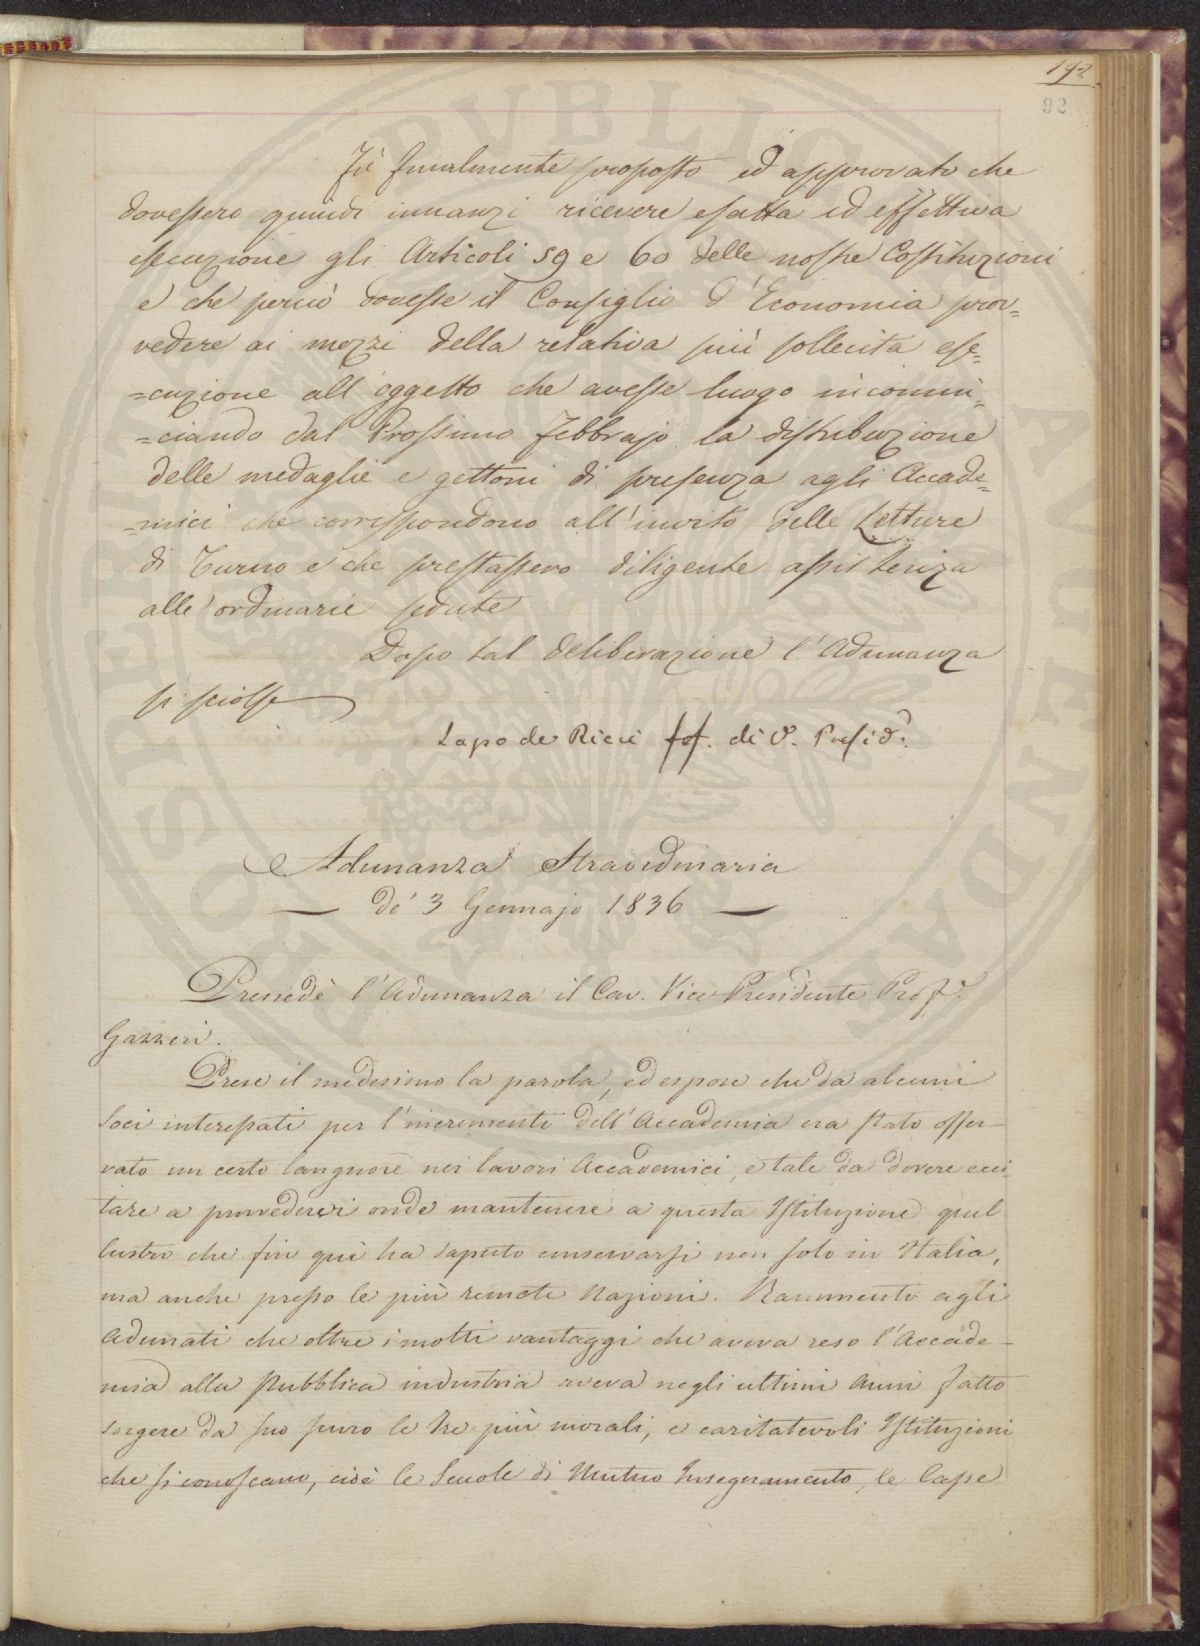 192
92
Fù finalmente proposto ed approvato che
dovessero quindi innanzi ricevere esatta ed effettiva
esecuzione gli Articoli 59 e 60 delle nostre Costituzioni
e che perciò dovesse il Consiglio d'Economia prov=
vedere ai mezzi della relativa più sollecita ese=
=cuzione all'oggetto che avesse luogo incomin=
=ciando dal Prossimo Febbrajo la distribuzione
delle medaglie e gettoni di presenza agli Accade=
=mici che corrispondono all'invito delle Letture
di Turno e che prestassero diligente assistenza
alle ordinarie sedute
Dopo tal deliberazione l'Adunanza
si sciolse
Lapo de Ricci ff. di V. Presid.e
Adunanza Straordinaria
— de' 3 Gennajo 1836 —
Presiedè l'Adunanza il Cav. Vice-Presidente Prof.e
Gazzeri.
Prese il medesimo la parola, ed espose che da alcuni
Soci interessati per l'incremento dell'Accademia era stato osser-
vato un certo languore nei lavori Accademici, e tale da dovere ecci
tare a provvederci onde mantenere a questa Istituzione quel
lustro che fin quì ha saputo conservarsi non solo in Italia,
ma anche presso le più remote Nazioni. Rammentò agli
Adunati che oltre i molti vantaggi che aveva reso l'Accade-
mia alla pubblica industria aveva negli ultimi Anni fatto
sorgere da suo seno le tre più morali, e caritatevoli Istituzioni
che si conoscano, cioè le Scuole di Mutuo Insegnamento, le Casse